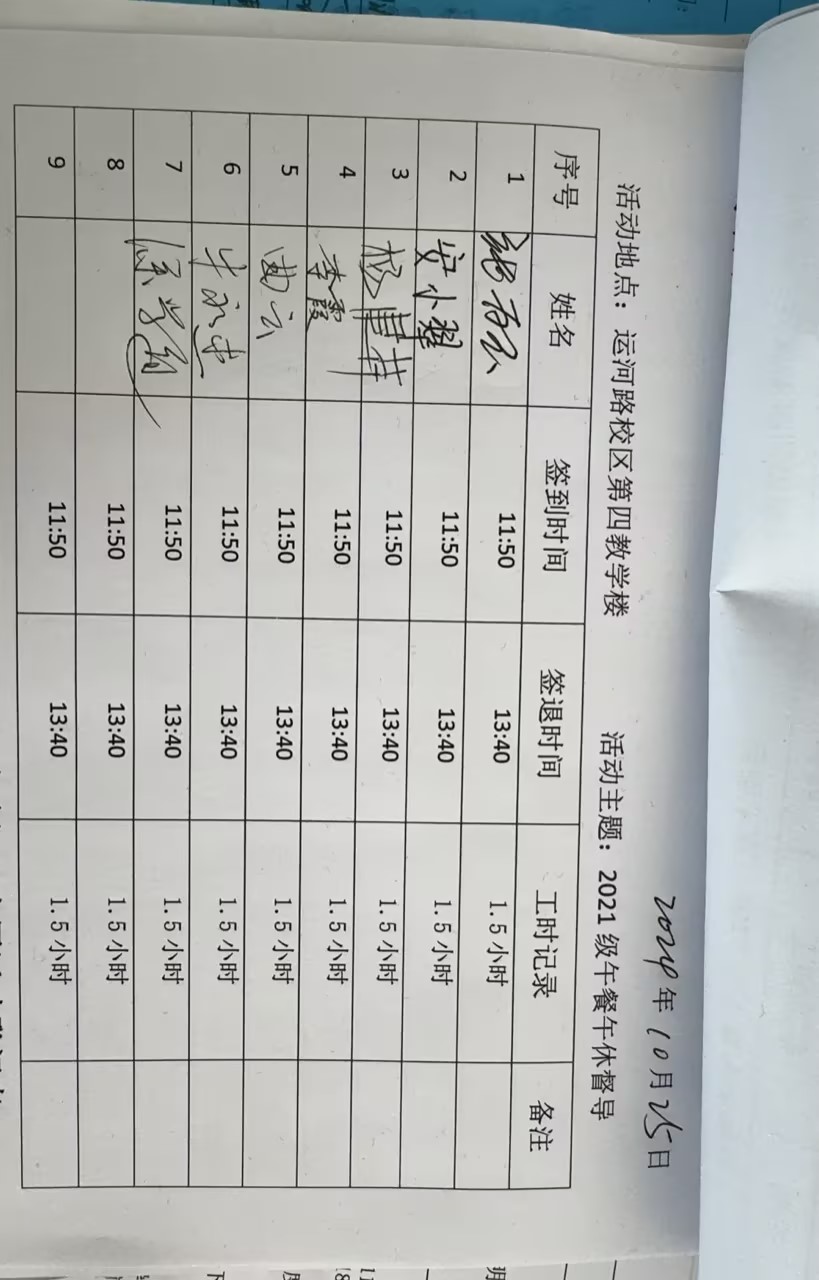 2024年10月25日
活动地点：运河路校区第四教学楼 活动主题：2021级午餐午休督导
序号 姓名 签到时间 签退时间 工时记录 备注
1 11:50 13:40 1.5小时
2 安小翠 11:50 13:40 1.5小时
3 杨 11:50 13:40 1.5小时
4 李霞 11:50 13:40 1.5小时
5 曲云 11:50 13:40 1.5小时
6 牛 11:50 13:40 1.5小时
7 11:50 13:40 1.5小时
8 11:50 13:40 1.5小时
9 11:50 13:40 1.5小时